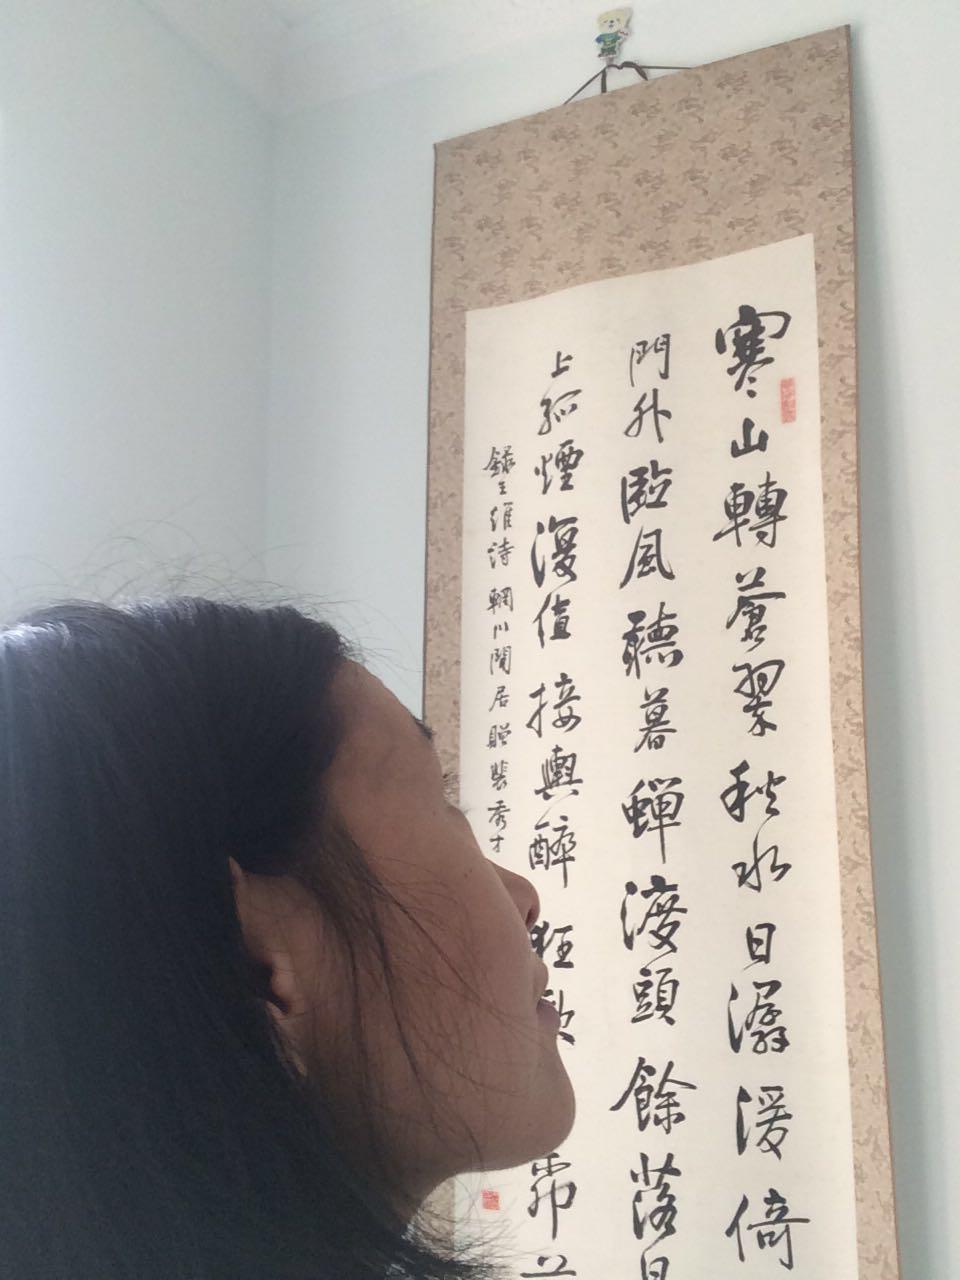 寒山轉蒼翠秋水日潺湲倚
門外臨風聽暮蟬渡頭餘落日
上孤煙復值接輿醉狂歌
錄王維詩輞川閒居贈裴秀才